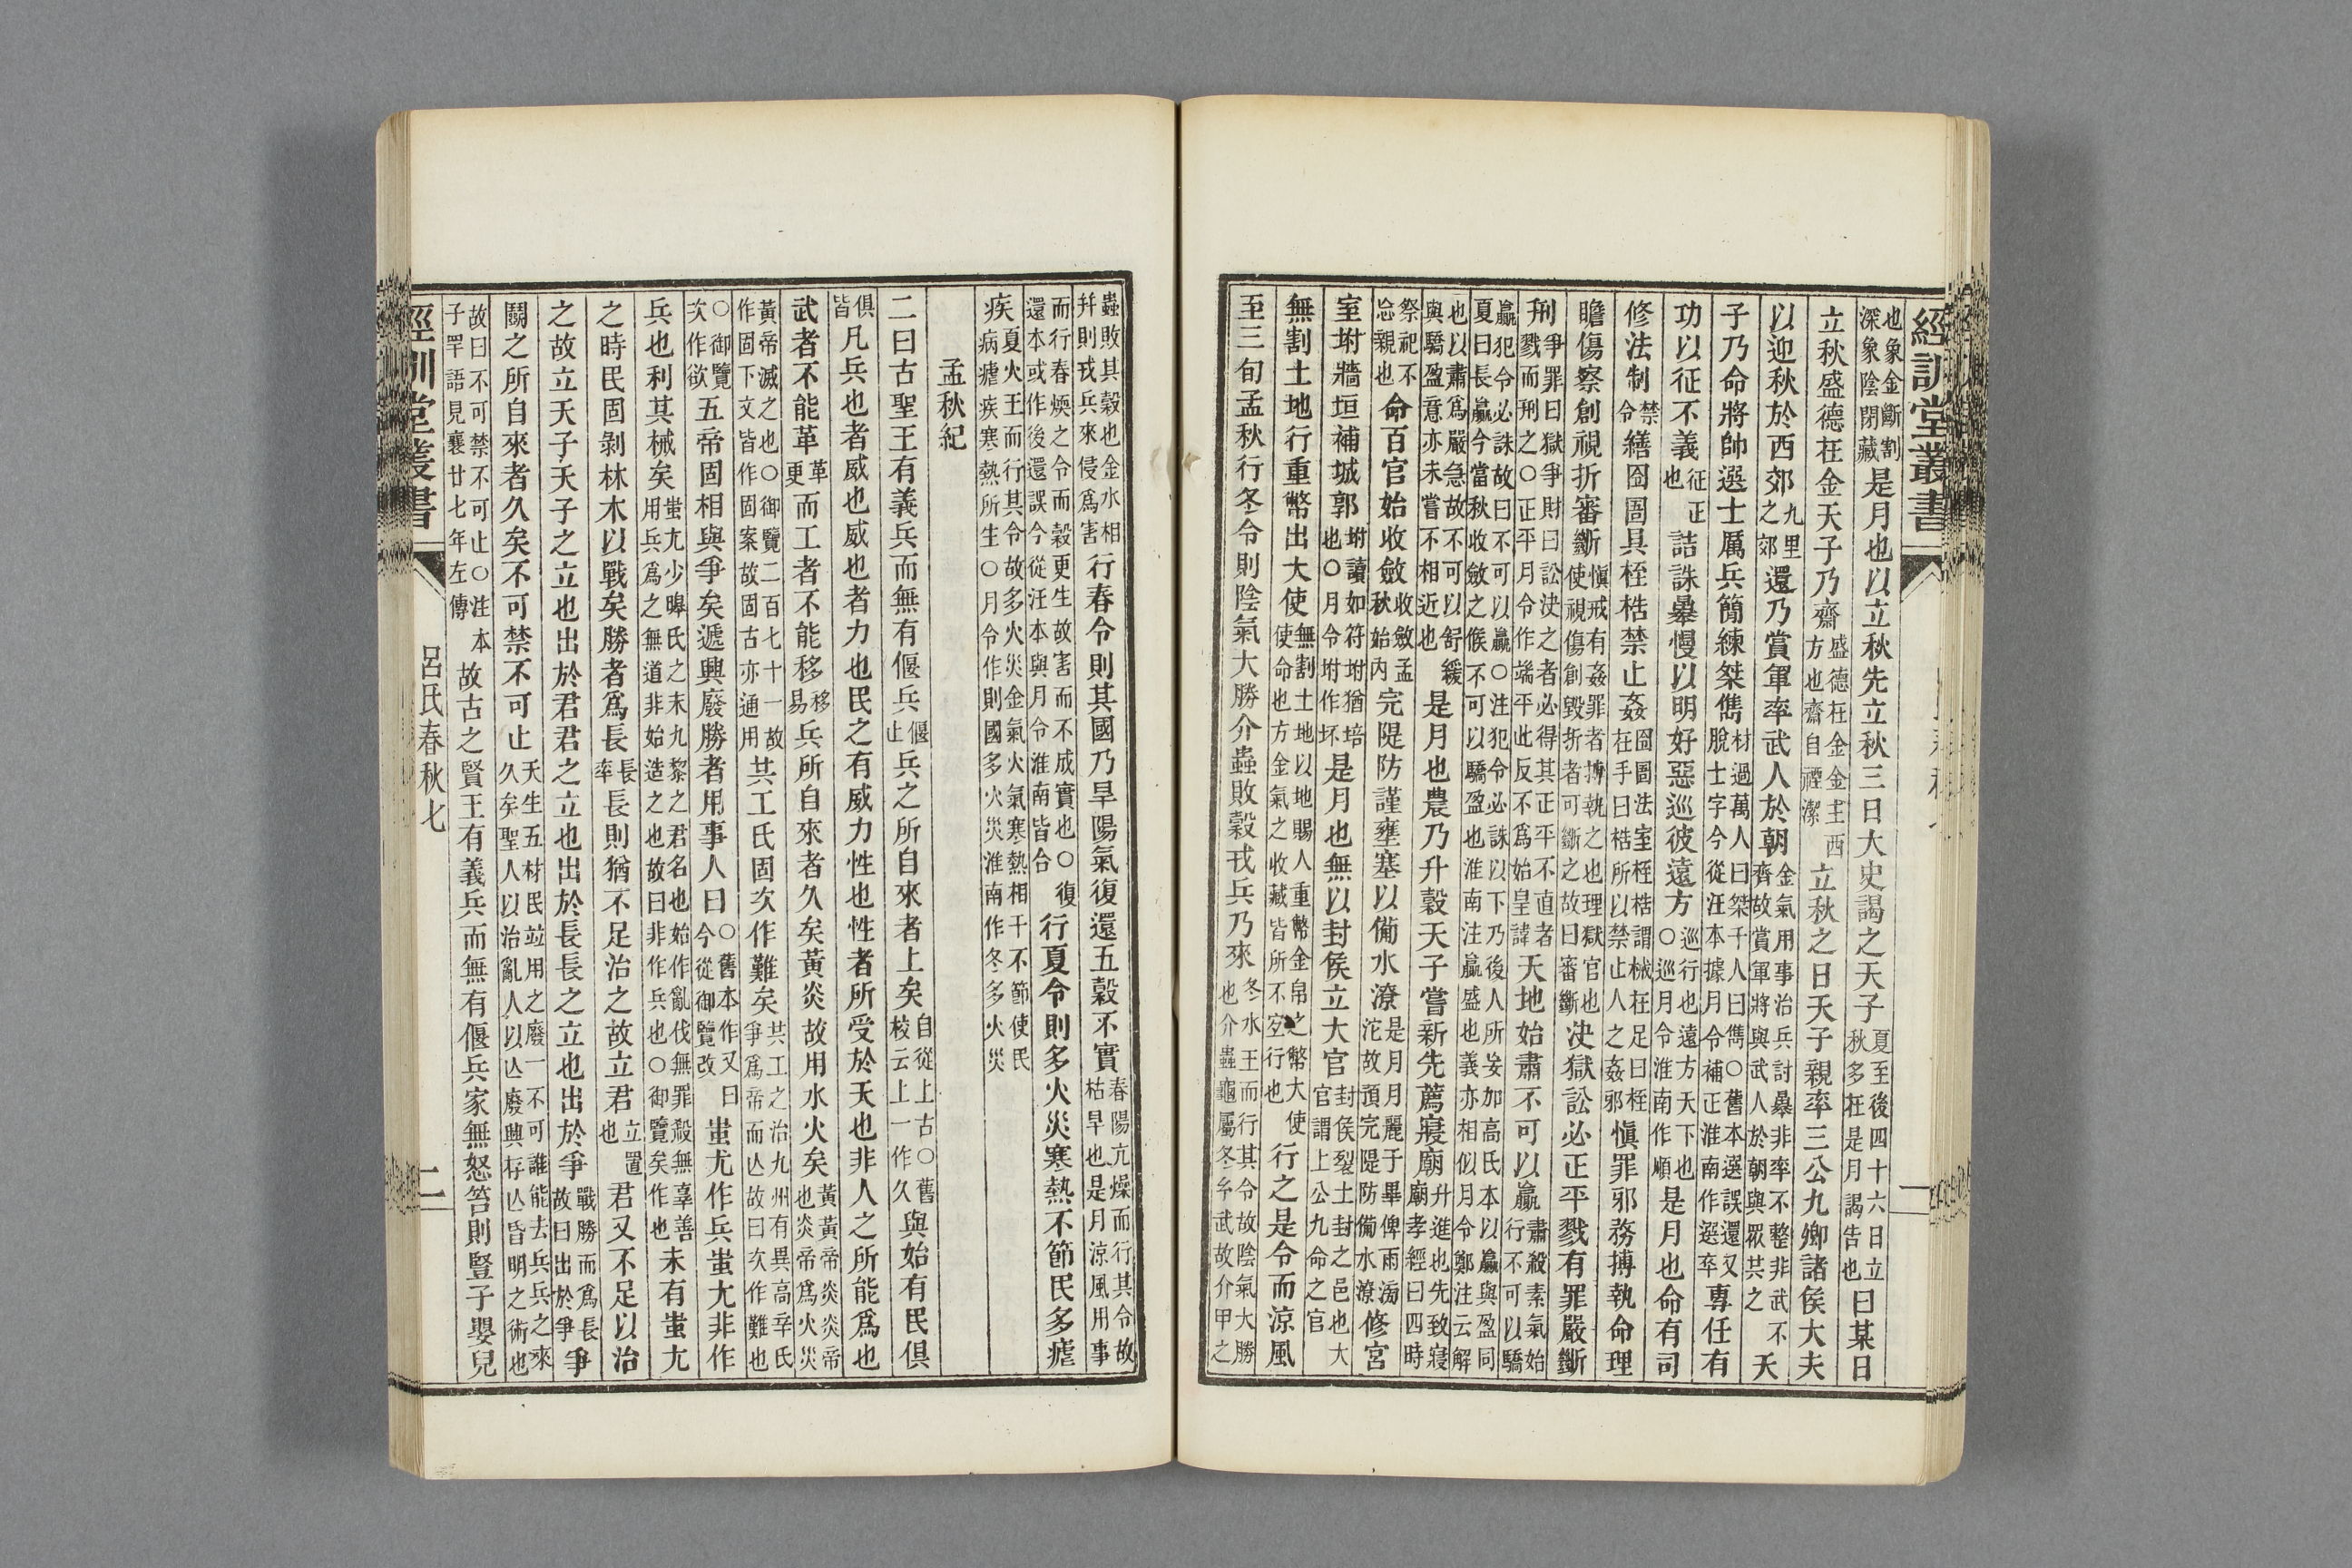 經訓堂叢書
也象金斷割深象陰閉藏是月也以立秋先立秋三日大史謁之天子夏至後四十六日立秋多在是月謁告也曰某日
立秋盛德在金天子乃齋盛德在金金主西方也齋自禋潔立秋之日天子親率三公九卿諸侯大夫
以迎秋於西郊九里之郊還乃賞軍率武人於朝金氣用事治兵討暴非率不整非武不齊故賞軍將與武人於朝與眾共之天
子乃命將帥選士厲兵簡練桀雋材過萬人曰桀千人曰雋○舊本選誤還又脫士字今從汪本據月令補正淮南作選卒專任有
功以征不義征正也詰誅暴慢以明好惡巡彼遠方巡行也遠方天下也○巡月令淮南作順是月也命有司
修法制禁令繕囹圄具桎梏禁止姦囹圄法室桎梏謂械在足曰桎在手曰梏所以禁止人之姦邪愼罪邪務搏執命理
瞻傷察創視折審斷愼戒有姦罪者搏執之也理獄官也使視傷創毀折者可斷之故曰審斷決獄訟必正平戮有罪嚴斷
𠛬爭罪曰獄爭財曰訟決之者必得其正平不直者戮而𠛬之○正平月令作端平此反不爲始皇諱天地始肅不可以贏肅殺素氣始行不可以驕
贏犯令必誅故曰不可以贏○注犯令必誅以下乃後人所妄加高氏本以贏與盈同夏曰長贏今當秋收斂之候不可以驕盈也淮南注贏盛也義亦相似月令鄭注云解
也以肅爲嚴急故不可以舒緩與驕盈意亦未嘗不相近也是月也農乃升穀天子嘗新先薦寢廟升進也先致寢廟孝經曰四時
祭祀不忘親也命百官始收斂收斂孟秋始內完隄防謹壅塞以備水潦是月月麗于畢俾雨滂沱故預完隄防備水潦修宮
室坿牆垣補城郭坿讀如符坿猶培也○月令坿作坏是月也無以封侯立大官封侯裂土封之邑也大官謂上公九命之官
無割土地行重幣出大使無割土地以地賜人重幣金帛之幣大使使命也方金氣之收藏皆所不宜行也行之是令而涼風
至三旬孟秋行冬令則陰氣大勝介蟲敗穀戎兵乃來冬水王而行其令故陰氣大勝也介蟲龜屬冬玄武故介甲之
蟲敗其穀也金水相幷則戎兵來侵爲害行春令則其國乃旱陽氣復還五穀不實春陽亢燥而行其令故枯旱也是月涼風用事
而行春煗之令而穀更生故害而不成實也○復還本或作後還誤今從汪本與月令淮南皆合行夏令則多火災寒熱不節民多瘧
疾夏火王而行其令故多火災金氣火氣寒熱相干不節使民病瘧疾寒熱所生○月令作則國多火災淮南作冬多火災
孟秋紀
二曰古聖王有義兵而無有偃兵偃止兵之所自來者上矣自從上古○舊校云上一作久與始有民俱
俱皆凡兵也者威也威也者力也民之有威力性也性者所受於天也非人之所能爲也
武者不能革革更而工者不能移移易兵所自來者久矣黃炎故用水火矣黃黃帝炎炎帝也炎帝爲火災
黃帝滅之也○御覽二百七十一故作固下文皆作固案故固古亦通用共工氏固次作難矣共工之治九州有異高辛氏爭爲帝而亾故曰次作難也
○御覽次作欲五帝固相與爭矣遞興廢勝者用事人曰○舊本作又曰今從御覽改蚩尤作兵蚩尤非作
兵也利其械矣蚩尤少皞氏之末九黎之君名也始作亂伐無罪殺無辜善用兵爲之無道非始造之也故曰非作兵也○御覽矣作也未有蚩尤
之時民固剝林木以戰矣勝者爲長長率長則猶不足治之故立君立置也君又不足以治
之故立天子天子之立也出於君君之立也出於長長之立也出於爭戰勝而爲長故曰出於爭爭
鬭之所自來者久矣不可禁不可止天生五材民竝用之廢一不可誰能去兵兵之來久矣聖人以治亂人以亾廢興存亾昏明之術也
故曰不可禁不可止○注本子罕語見襄廿七年左傳故古之賢王有義兵而無有偃兵家無怒笞則豎子嬰兒
經訓堂叢書 呂氏春秋七 二